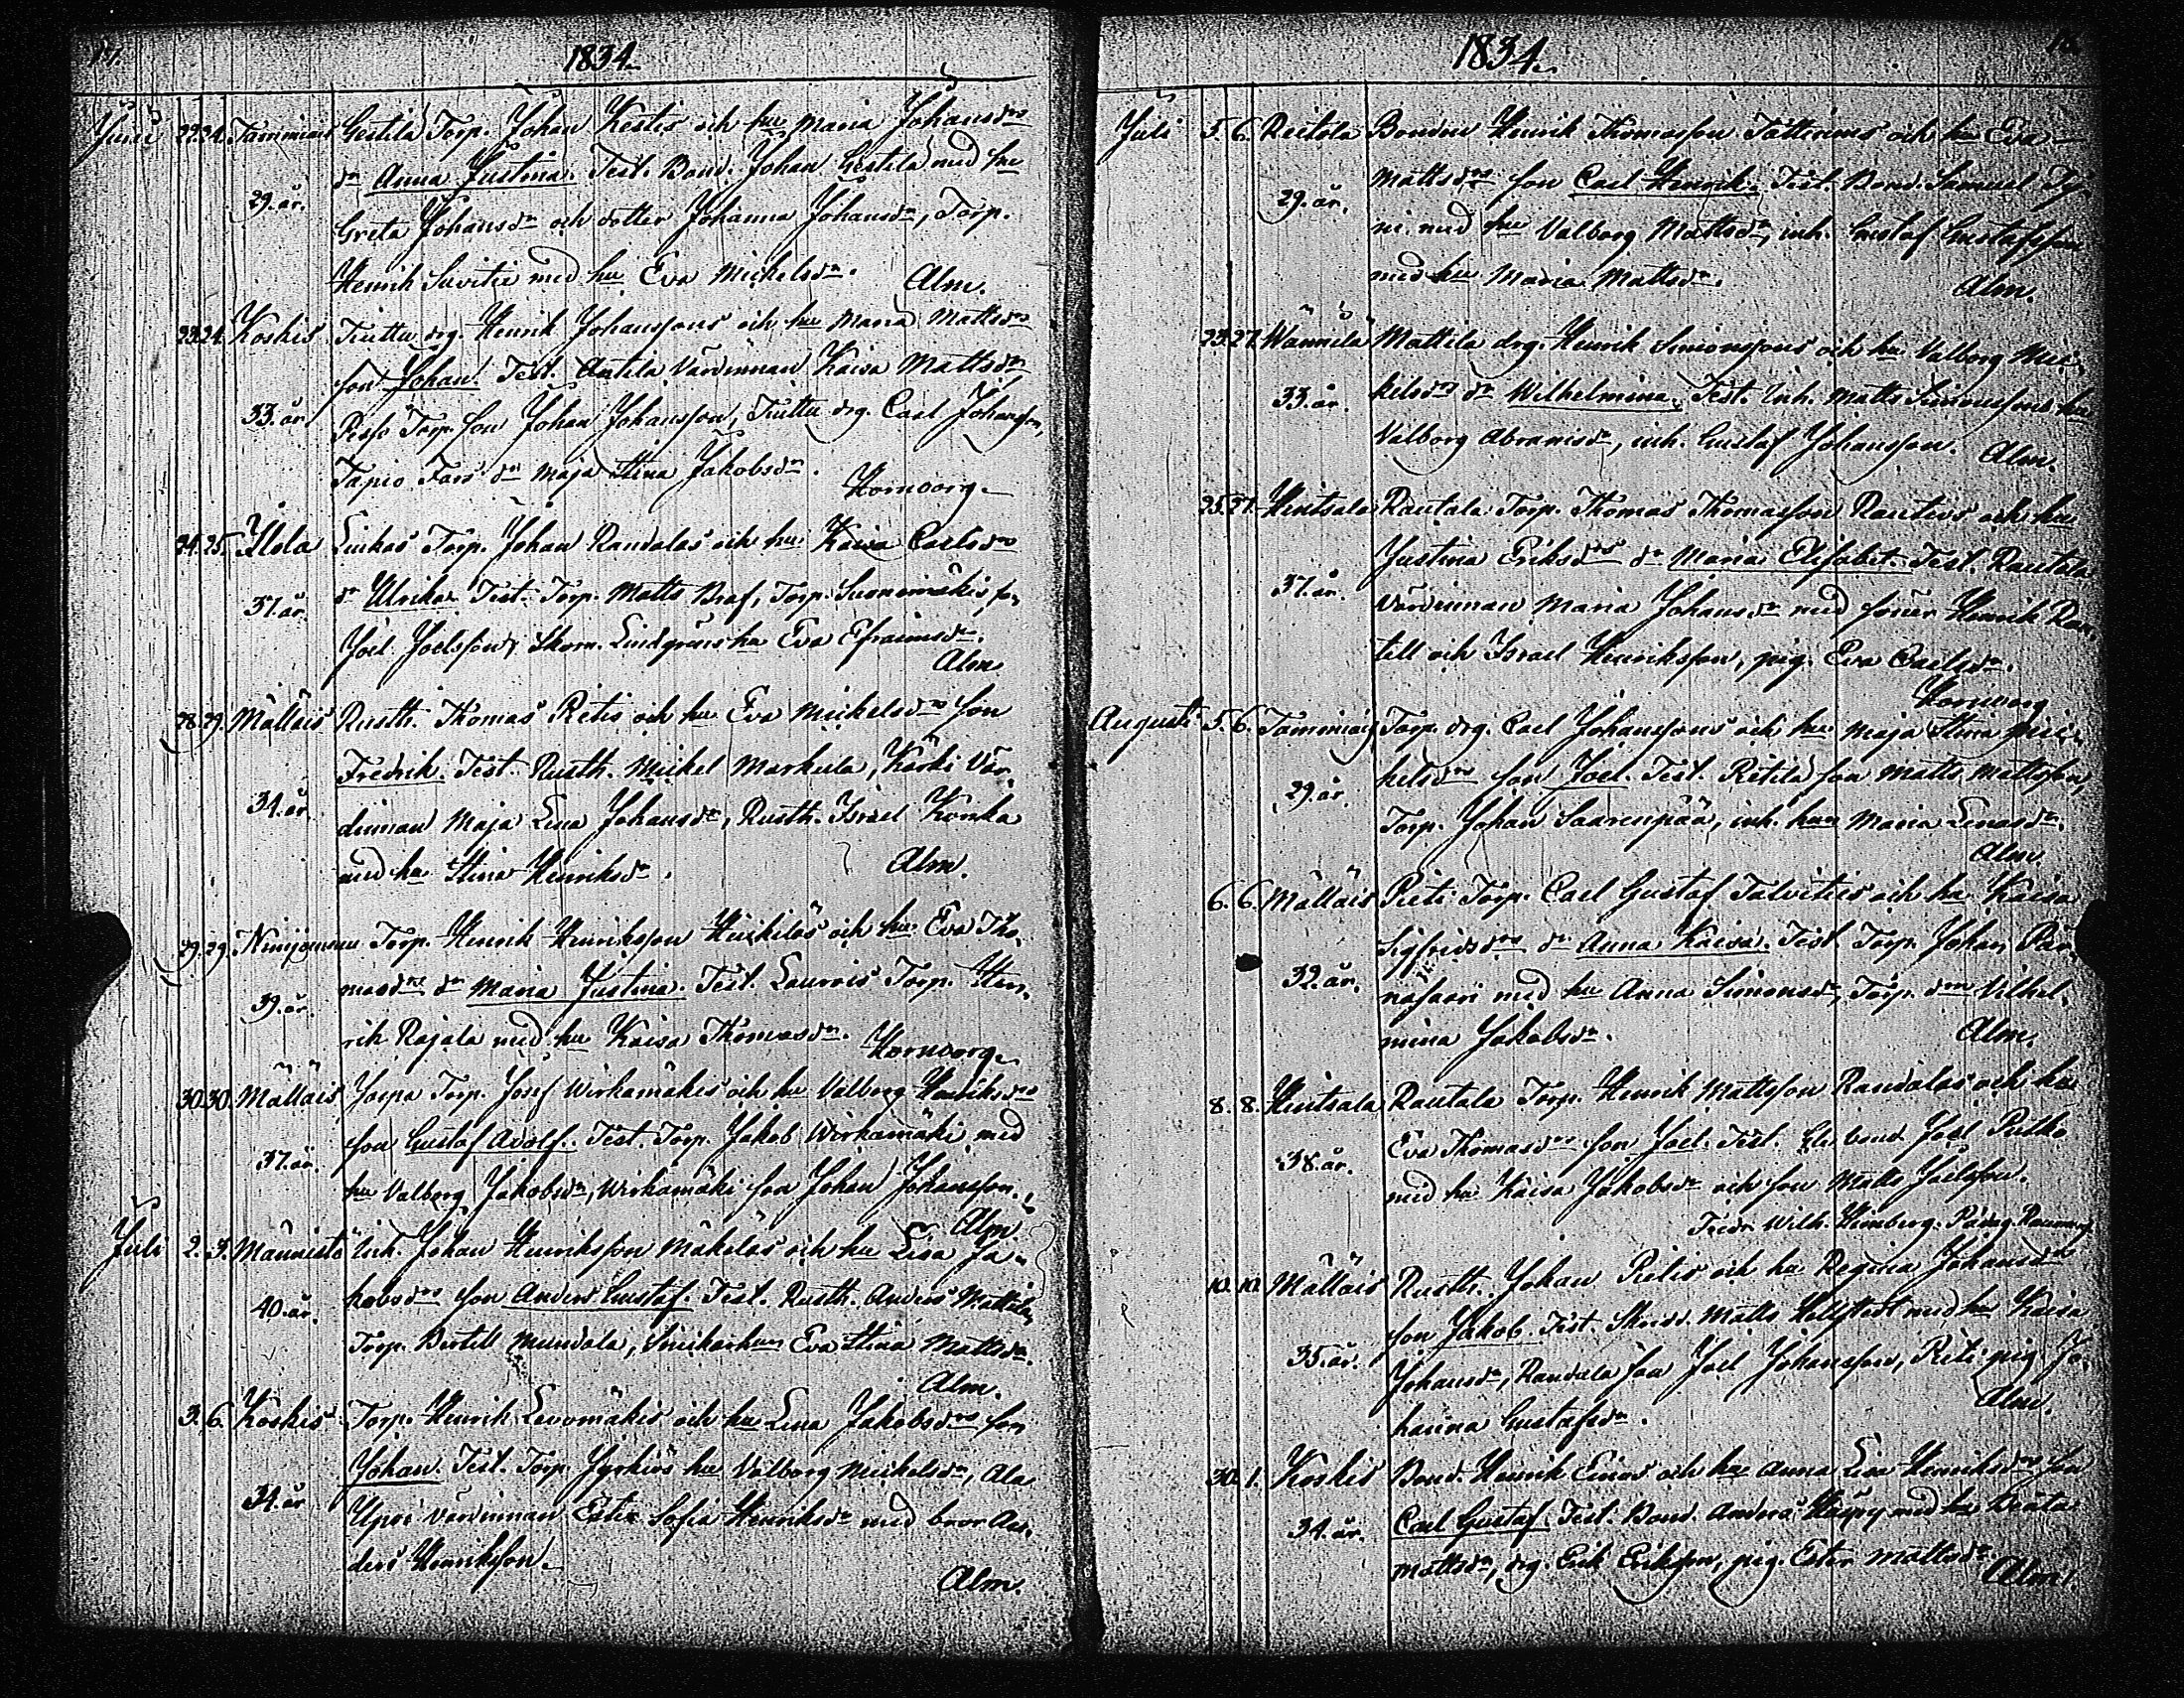 17.
1834.
Junii 23. 24. Tammiais Gestilä Torp. Johan Kestis och hu Maria Johansdrs
dr Anna Justina. Test. Bond. Johan Gestilä med hu
29. år.
Greta Johansdr och dotter Johanna Johansdr, Torp.
Henrik Suvitie med hu Eva Michelsdr. Alm.
23. 24. Koskis Tuttu drg. Henrik Johanssons och hu Maria Mattsdrs
son Johan. Test. Antila Värdinnan Kaisa Mattsdr
33. år.
Torp. son Johan Johansson, Tuttu drg. Carl Johansson,
Tapio Fars dr Maja Stina Jakobsdr. Hornborg.
24. 25. Ylola Torp. Johan Randalas och hu Kaisa Carlsdrs
dr Ulrika. Test. Torp. Matts Braf, Torp. Suomimäkis son
37. år.
Joel Joelsson, Skom. Lindgrens hu Eva Efraimsdr.
Alm.
28. 29. Mälläis Rusth. Thomas Pietis och hu Eva Michelsdrs son
Fredrik. Test. Rusth. Mickel Markula, Kärki Vär-
34. år.
dinnan Maja Lena Johansdr, Rusth. Israel Konka
med hu Stina Henriksdr. Alm.
29. 29. Niinijoensuu Torp. Henrik Henriksson Heikiläs och hu Eva Tho-
masdrs dr Maria Justina. Test. Laurois Torp. Hen-
39. år.
rik Rajala med hu Kaisa Thomasdr. Hornborg.
30. 30. Mälläis Jaspa Torp. Josef Wirkamäkis och hu Valborg Henriksdrs
son Gustaf Adolf. Test. Torp. Jakob Wirkamäki med
37. år.
hu Valborg Jakobsdr, Wirkamäki son Johan Johansson.
Alm.
Juli 2. 3. Männistö Inh. Johan Henriksson Mäkeläs och hu Lisa Ja-
kobsdrs son Anders Gustaf. Test. Rusth. Anders Mattila,
40. år.
Torp. Bertill Mundola, Snickarhun Eva Stina Mattsdr.
Alm.
3. 6. Koskis Torp. Henrik Levomäkis och hu Lena Jakobsdrs son
Johan. Test. Torp. Jyrkiös hu Valborg Michelsdr, Ala
34. år
Ypöi värdinnan Ester Sofia Henriksdr med bror An-
ders Henriksson.
Alm.
18.
1834.
Juli 5. 6. Reitola Bonden Henrik Thomasson Tattinens och hu Eva
Mattsdrs son Carl Henrik. Test. Bond. Samuel Ty-
29. år.
ni med hu Valborg Mattsdr, inh. Gustaf Gustafsson
med hu Maria Mattsdr. Alm.
23. 27. Wännilä Mattila drg. Henrik Simonssons och hu Valborg Mi-
kelsdrs dr Wilhelmina. Test. Inh. Matts Simonssons hu
33. år.
Valborg Abramsdr, inh. Gustaf Johansson. Alm.
25. 27. Hintsala Rautala Torp. Thomas Thomasson Rautios och hu
Justina Eriksdrs dr Maria Elisabet. Test. Rautala
37. år.
Värdinnan Maria Johansdr med söner Henrik
och Israel Henriksson, pig. Eva Carlsdr.
Hornborg
Augusti 5. 6. Tammiais Torp. drg. Carl Johanssons och hu Maja Stina Mi-
kelsdrs son Joel. Test. Ristilä son Matts Mattsson,
29. år.
Torp. Johan Saarenpää, inh. hun Maria Lenasdr.
Alm.
6. 6. Mälläis Pieti Torp. Carl Gustaf Talvities och hu Kaisa
Sigfridsdrs dr Anna Kaisa. Test. Torp. Johan Pär-
32. år.
näsaari med hu Anna Simonsdr, Torp. drn Vilhel-
mina Jakobsdr. Alm.
8. 8. Hintsala Rautala Torp. Henrik Mattsson Randalas och hu
Eva Thomasdrs son Joel. Test. bond. Joel
38. år.
med hu Kaisa Jakobsdr och son Matts Joelsson.
Fredr. Wilh. Heinberg. Pædag. Raumo
10. 10. Mälläis Rusth. Johan Pietis och hu Regina Johansdrs
son Jakob. Test. Skrädd. Matts Hellstedt med hu Kaisa
35. år.
Johansdr, Randala son Joel Johansson, Pieti pig. Jo-
hanna Gustafsdr. Alm.
30. 1. Koskis Bond. Henrik Einos och hu Anna Lisa Henriksdrs son
Carl Gustaf. Test. Bond. Anders med hu Beata
34. år.
Mattsdr, drg. Erik Eriksson, pig. Ester Mattsdr
Alm.